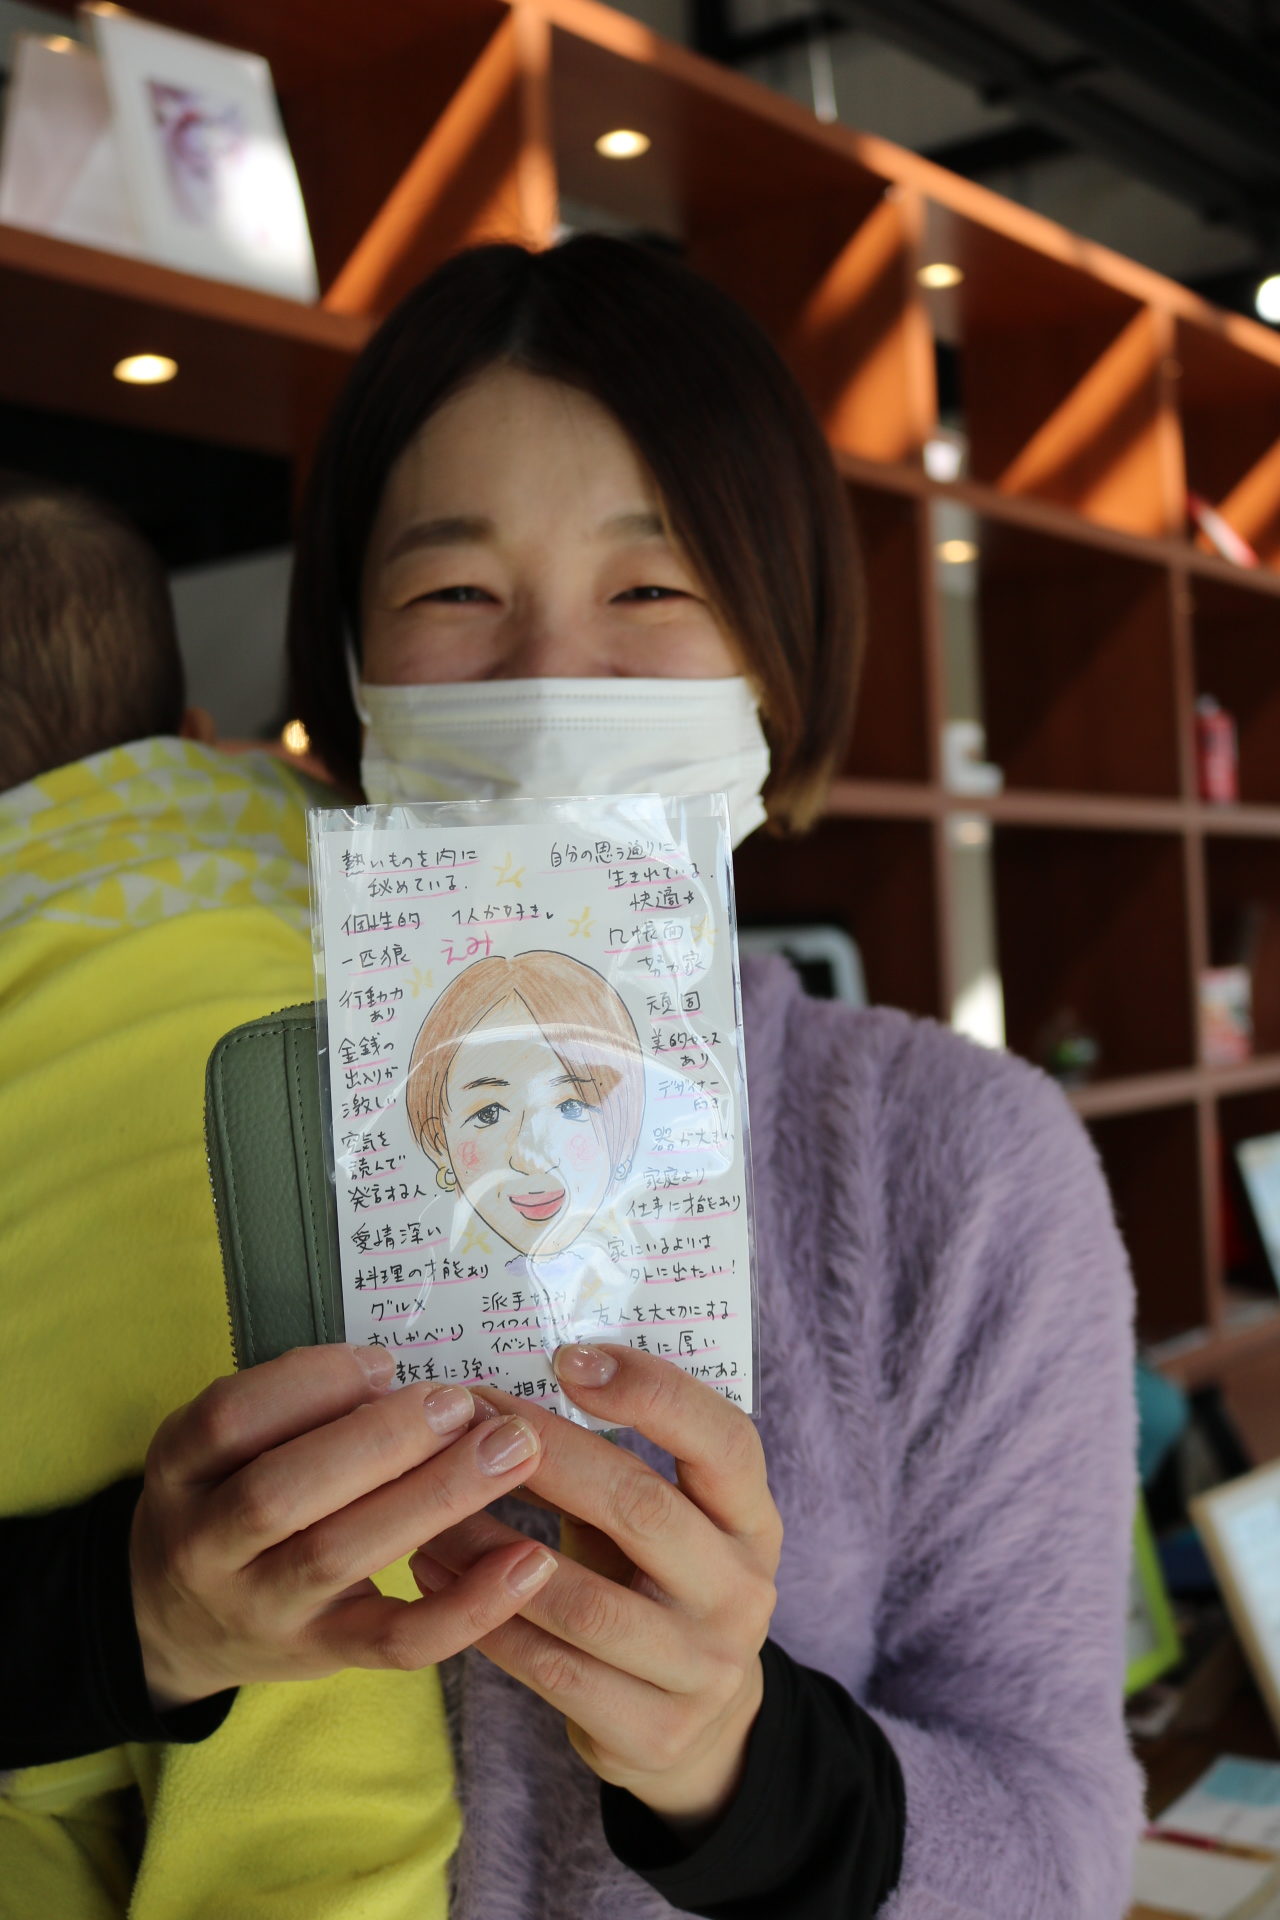 熱いものを内に
秘めている.
個性的
1人が好き
一匹狼
えみ
行動力
あり
金銭の
出入りが
激しい
空気を
読んで
発言する人.
愛情深い
料理の才能あり
グルメ
おしゃべり
数字に強い.
自分の思う通りに
生きれている.
快適
几帳面
努力家
頑固
美的センス
あり
デザイナー
向き
器が大きい
家庭より
仕事に才能あり
家にいるよりは
外に出たい!
派手好み.
ワイワイ
イベント
友人を大切にする
情に厚い
がある.
相手と